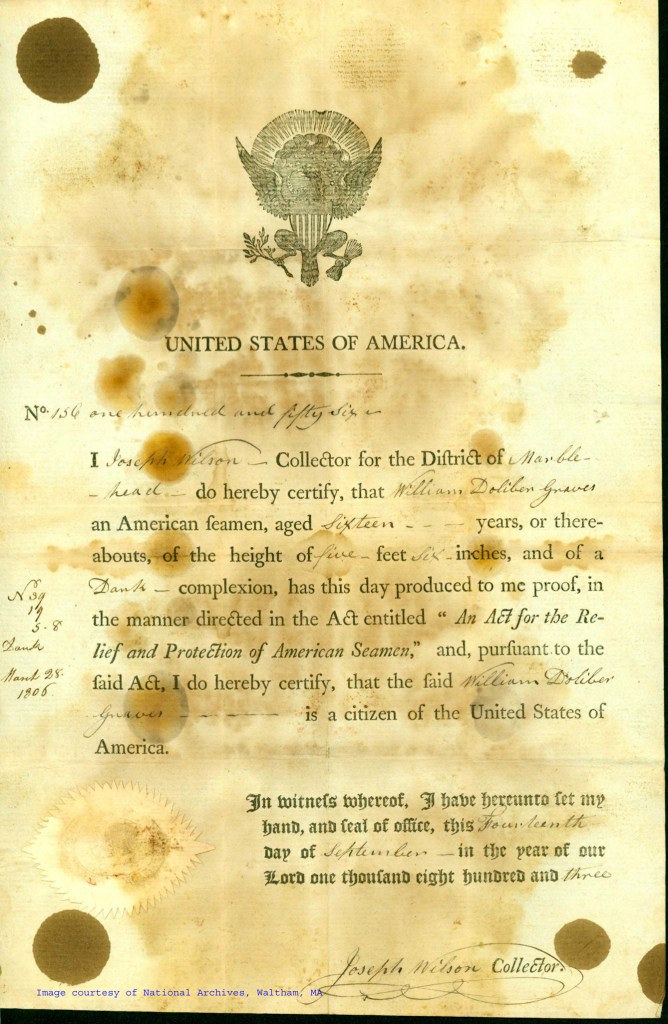 UNITED STATES OF AMERICA.
No. 156 one hundred and fifty six
I Joseph Wilson Collector for the Diſtrict of Marble-
-head - do hereby certify, that William Doliber Graves
an American ſeamen, aged Sixteen - - - years, or there-
abouts, of the height of five - feet six - inches, and of a
Dark - complexion, has this day produced to me proof, in
the manner directed in the Act entitled “ An Act for the Re-
lief and Protection of American Seamen,” and, purſuant to the
ſaid Act, I do hereby certify, that the ſaid William Doliber
Graves - - - - is a citizen of the United States of
America.
No 39
19
5-8
Dark
March 28
1806
In witneſs whereof, I have hereunto ſet my
hand, and ſeal of office, this Fourteenth
day of September - in the year of our
Lord one thouſand eight hundred and three
Joseph Wilson Collector.
Image courtesy of National Archives, Waltham, MA